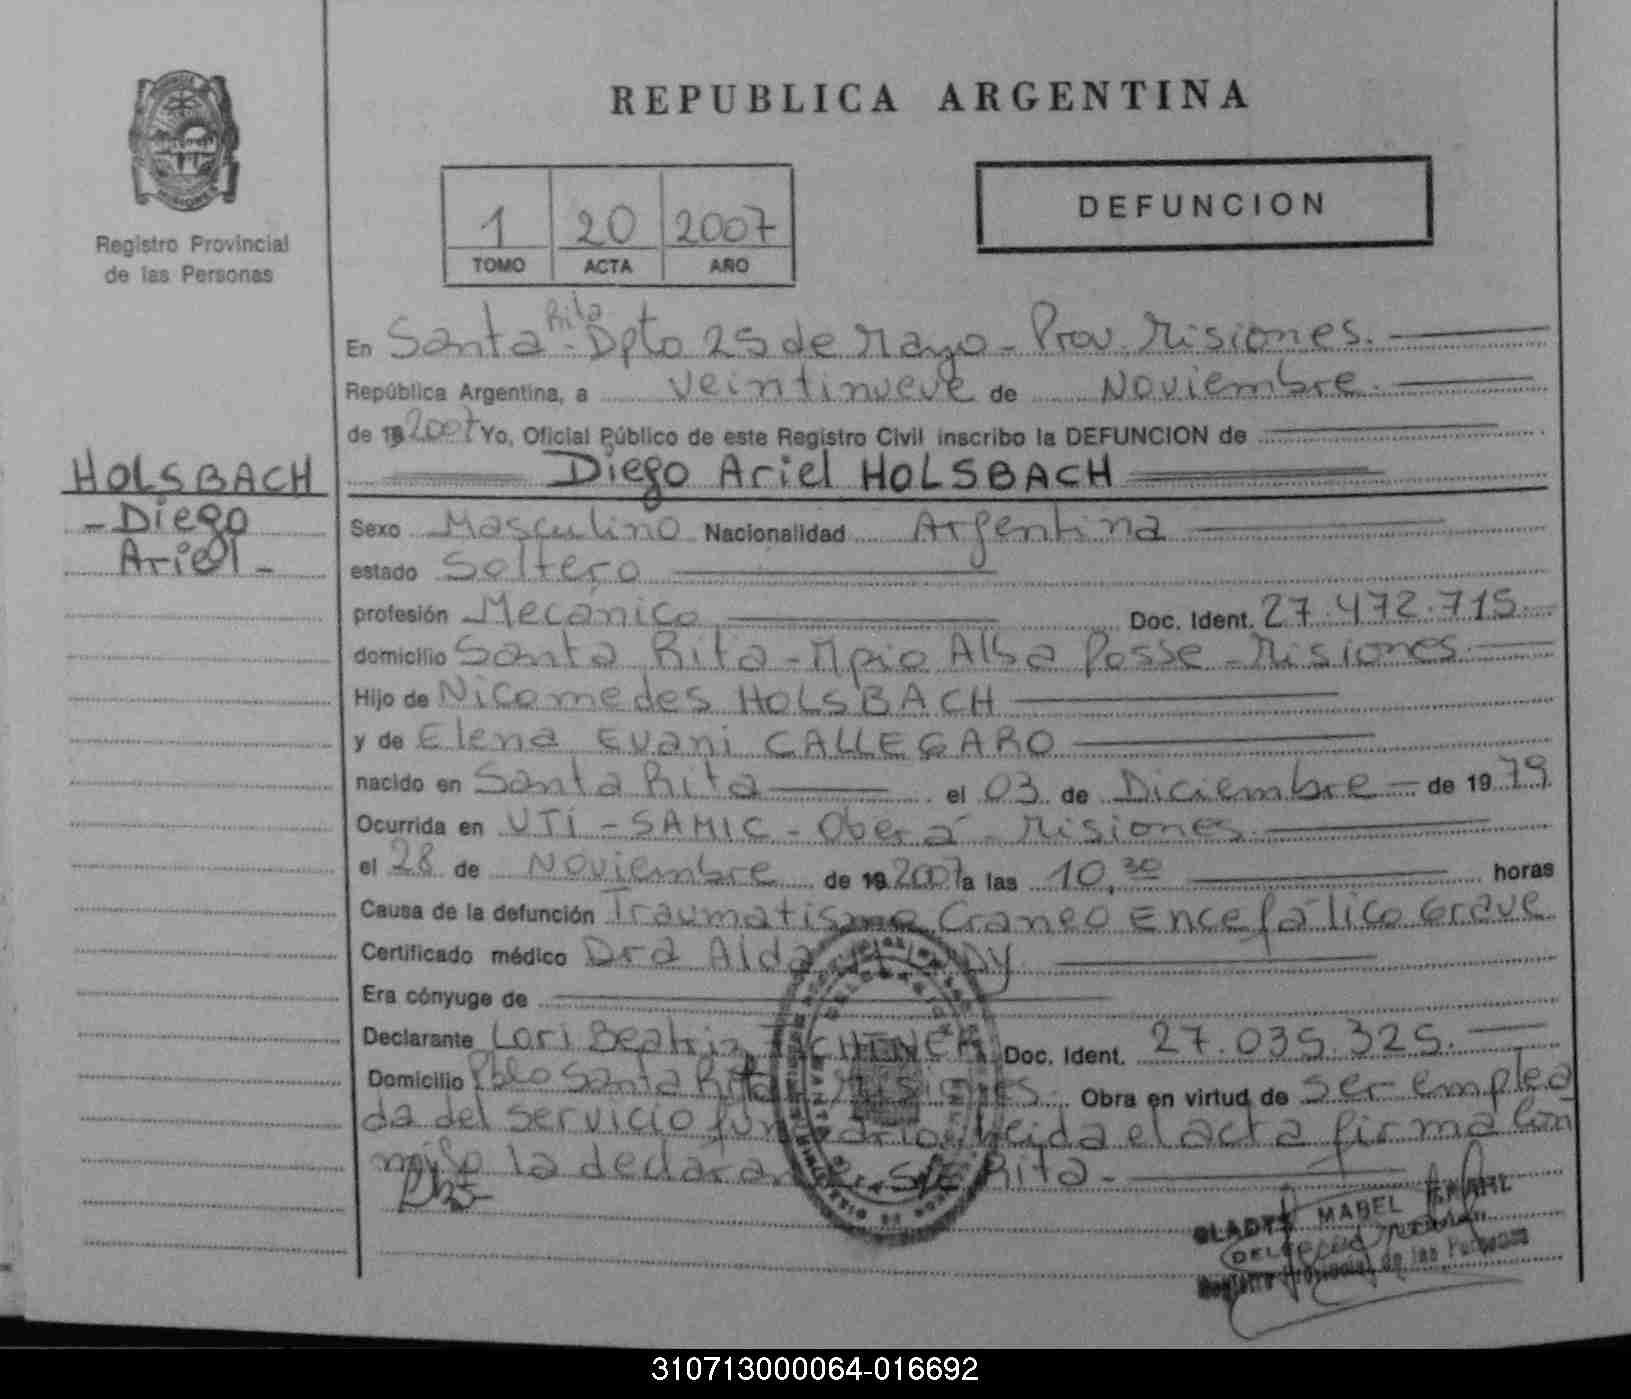 REPUBLICA ARGENTINA
Registro Provincial
de las Personas
1 20 2007
TOMO ACTA AÑO
DEFUNCION
En Santa Rita - Dpto 25 de Mayo - Prov. Misiones.
República Argentina, a veintinueve de Noviembre.
de 19 2007 Yo, Oficial Público de este Registro Civil inscribo la DEFUNCION de
Diego Ariel HOLSBACH
HOLSBACH
- Diego
Ariel -
Sexo Masculino Nacionalidad Argentina
estado Soltero
profesión Mecánico Doc. Ident. 27.472.715.
domicilio Santa Rita - Mpio Alba Posse - Misiones.
Hijo de Nicomedes HOLSBACH
y de Elena Evani CALLEGARO
nacido en Santa Rita el 03 de Diciembre - de 19 79.
Ocurrida en UTI - SAMIC - Oberá - Misiones.
el 28 de Noviembre de 19 2007 a las 10,30 horas
Causa de la defunción Traumatismo Craneo Encefálico Grave
Certificado médico Dra Alda
Era cónyuge de
Declarante Lori Beatriz Doc. Ident. 27.035.325.
Domicilio Pblo Santa Rita Misiones. Obra en virtud de ser emplea
da del servicio leida el acta firma con
migo la declarante. Sta Rita.
GLADYS MABEL
Registro Provincial de las Personas
310713000064-016692